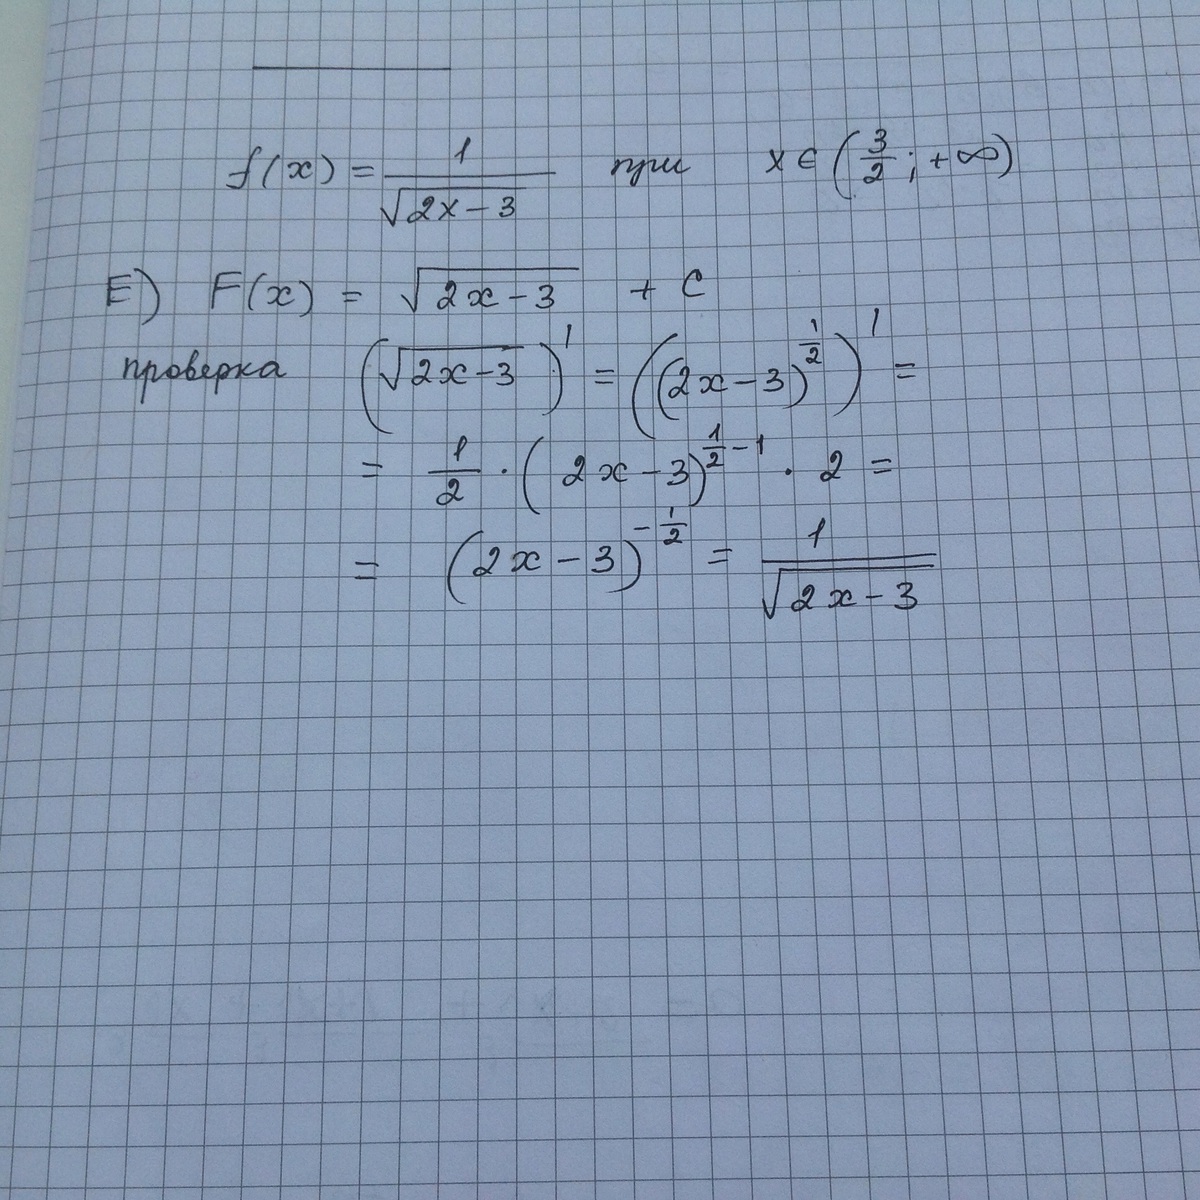 f(x) = 1/√(2x-3) при x ∈ (3/2; +∞)
E) F(x) = √(2x-3) + C
проверка (√(2x-3))' = ((2x-3)^(1/2))' =
= 1/2 · (2x-3)^(1/2-1) · 2 =
= (2x-3)^(-1/2) = 1/√(2x-3)